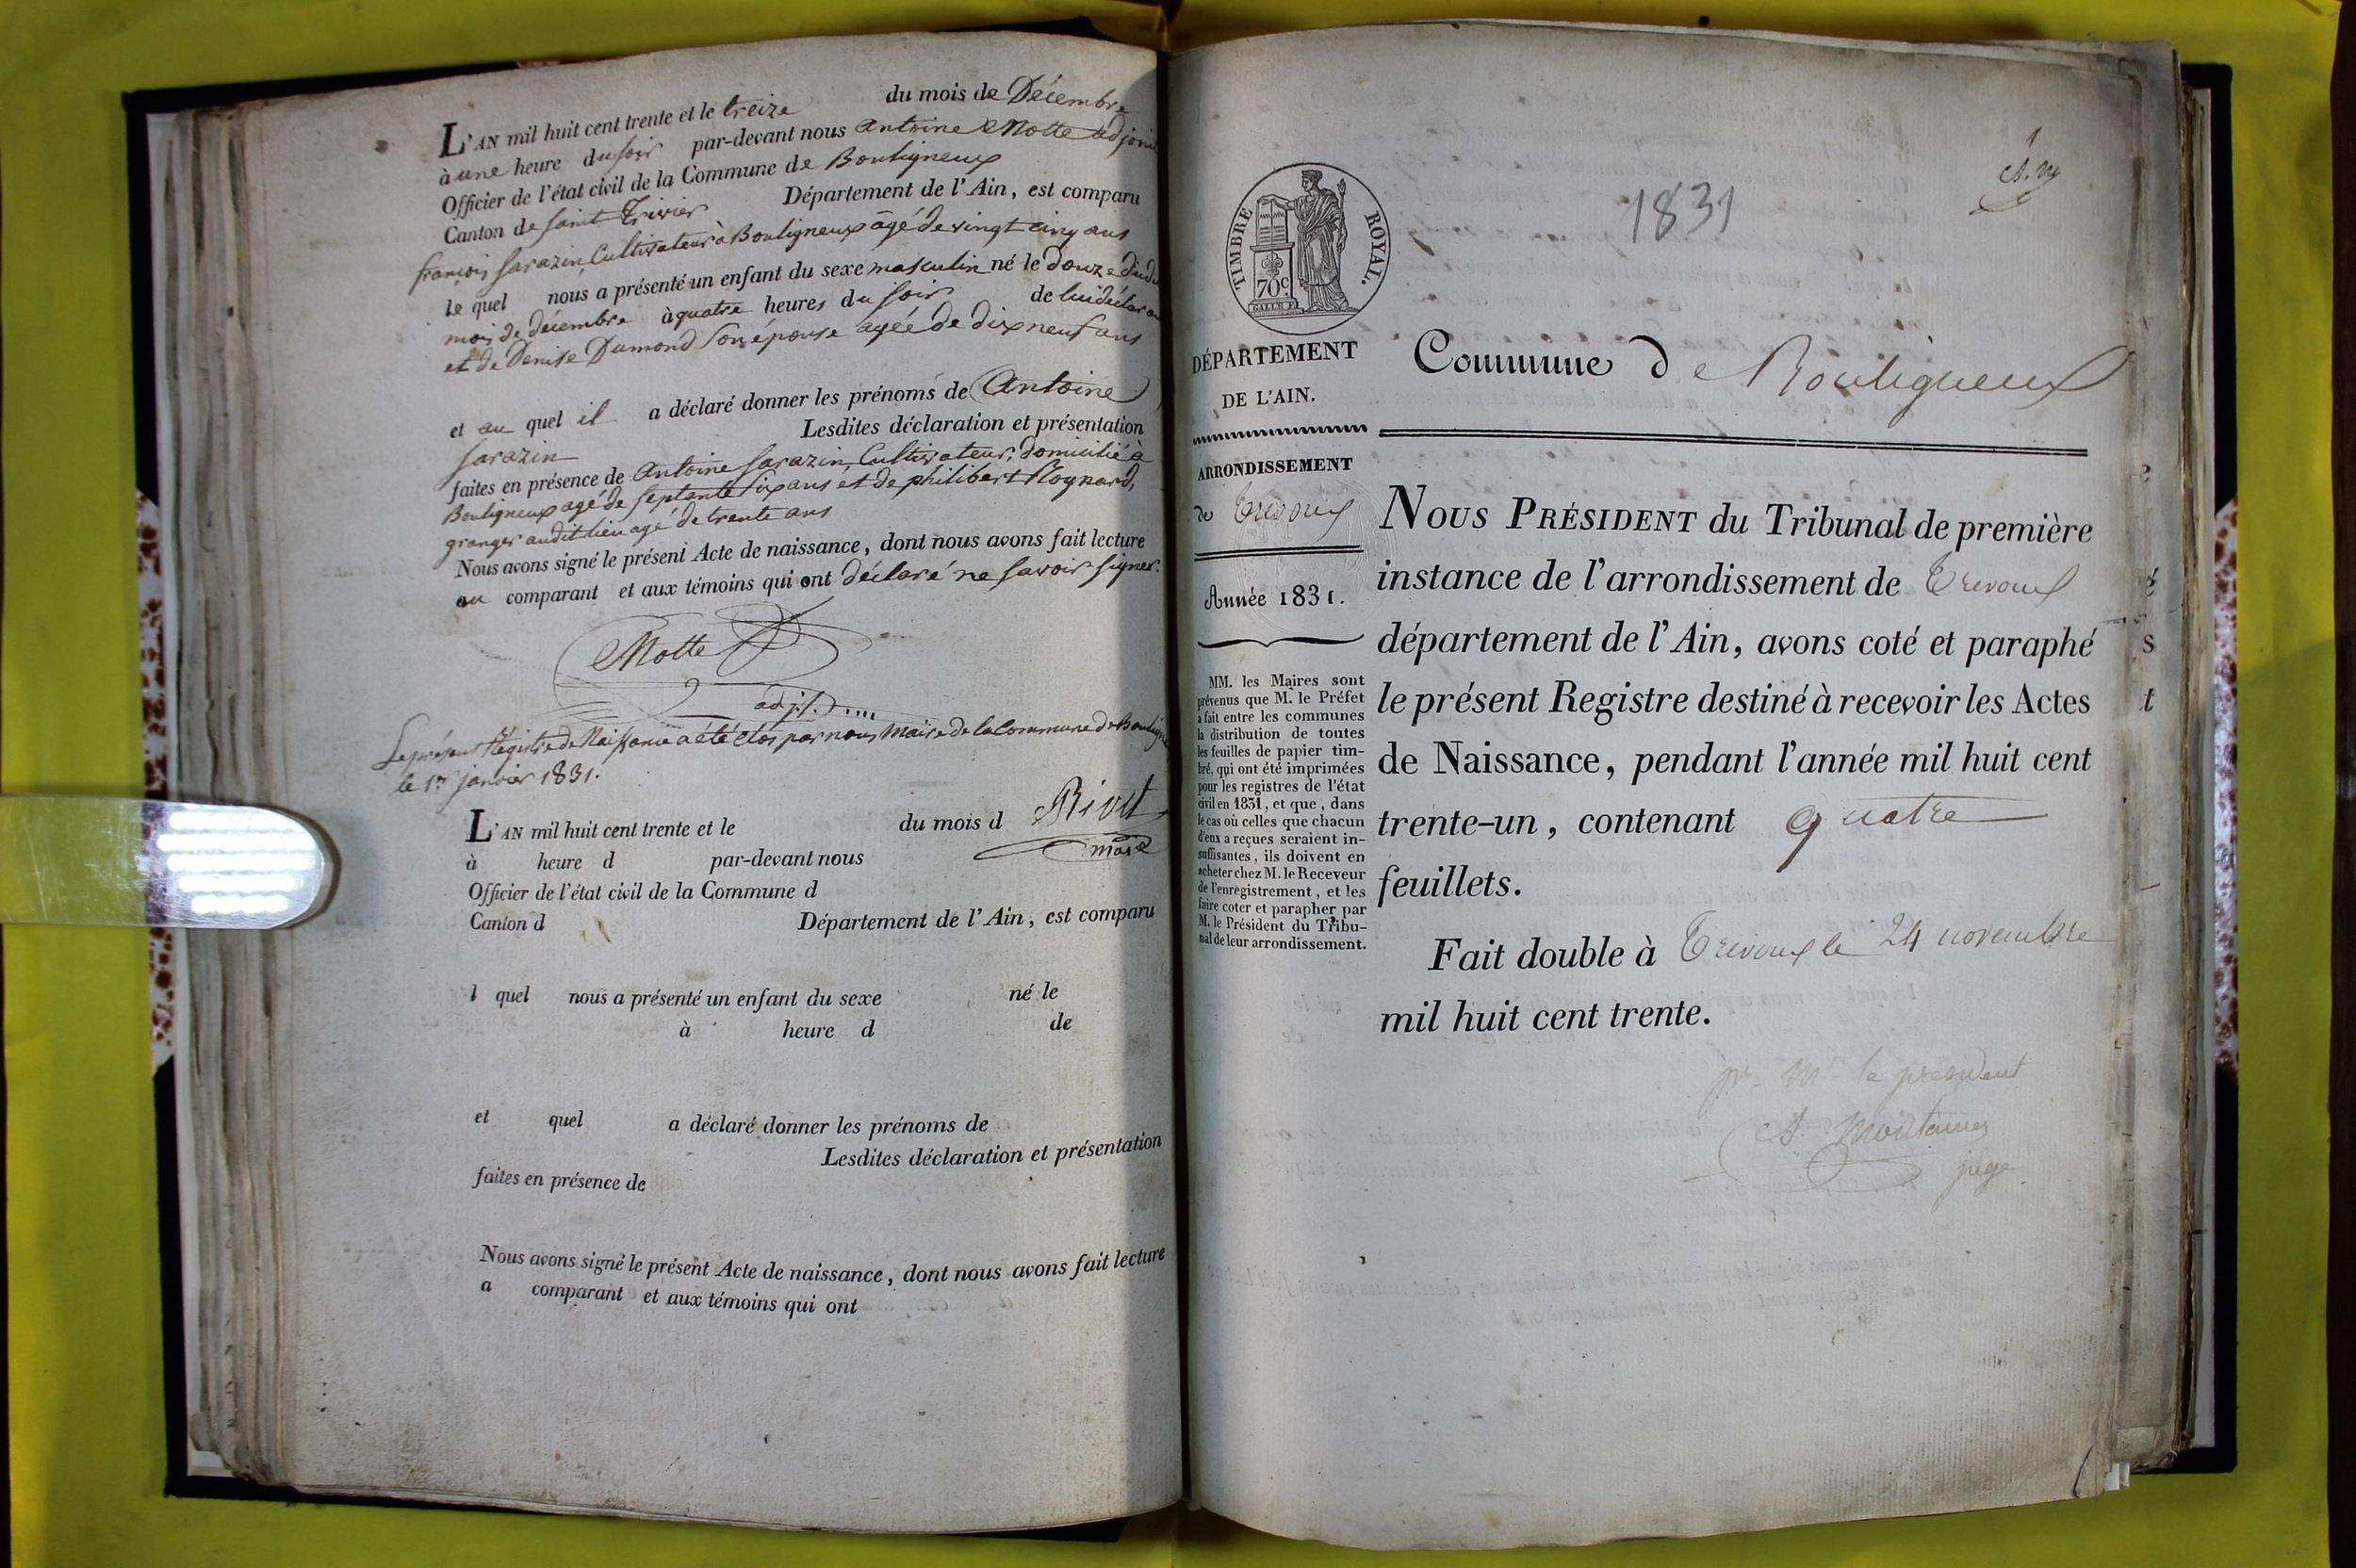 L'AN mil huit cent trente et le treize du mois de Décembre
à une heure du soir par-devant nous Antoine Motte adjoint
Officier de l'état civil de la Commune de Bouligneux
Canton de saint Trivier Département de l'Ain, est comparu
françois sarazin, Cultivateur à Bouligneux âgé de vingt cinq ans
le quel nous a présenté un enfant du sexe masculin né le douze dudit
mois de décembre à quatre heures du soir de lui déclarant
et de Denise Dumond son épouse agée de dix neuf ans
et au quel il a déclaré donner les prénoms de Antoine
sarazin Lesdites déclaration et présentation
faites en présence de Antoine sarazin, Cultivateur, domicilié à
Bouligneux agé de septante six ans et de philibert Roynard,
granger audit lieu agé de trente ans
Nous avons signé le présent Acte de naissance, dont nous avons fait lecture
au comparant et aux témoins qui ont déclaré ne savoir signer.
Motte
adjt.
Le présent Régistre de Naissance a été clos par nous Maire de la Commune de Bouligneux
le 1er janvier 1831.
Rivet
maire
L'AN mil huit cent trente et le du mois d
à heure d par-devant nous
Officier de l'état civil de la Commune d
Canton d Département de l'Ain, est comparu
l quel nous a présenté un enfant du sexe né le
à heure d de
et quel a déclaré donner les prénoms de
Lesdites déclaration et présentation
faites en présence de
Nous avons signé le présent Acte de naissance, dont nous avons fait lecture
a comparant et aux témoins qui ont
1
1831
TIMBRE ROYAL.
70c
DÉPARTEMENT
DE L'AIN.
ARRONDISSEMENT
de Trevoux
Année 1831.
MM. les Maires sont
prévenus que M. le Préfet
a fait entre les communes
la distribution de toutes
les feuilles de papier tim-
bré, qui ont été imprimées
pour les registres de l'état
civil en 1831, et que, dans
le cas où celles que chacun
d'eux a reçues seraient in-
suffisantes, ils doivent en
acheter chez M. le Receveur
de l'enregistrement, et les
faire coter et parapher par
M. le Président du Tribu-
nal de leur arrondissement.
Commune de Bouligneux
NOUS PRÉSIDENT du Tribunal de première
instance de l'arrondissement de Trevoux
département de l'Ain, avons coté et paraphé
le présent Registre destiné à recevoir les Actes
de Naissance, pendant l'année mil huit cent
trente-un, contenant quatre
feuillets.
Fait double à Trevoux le 24 novembre
mil huit cent trente.
pr. Mr le president
juge